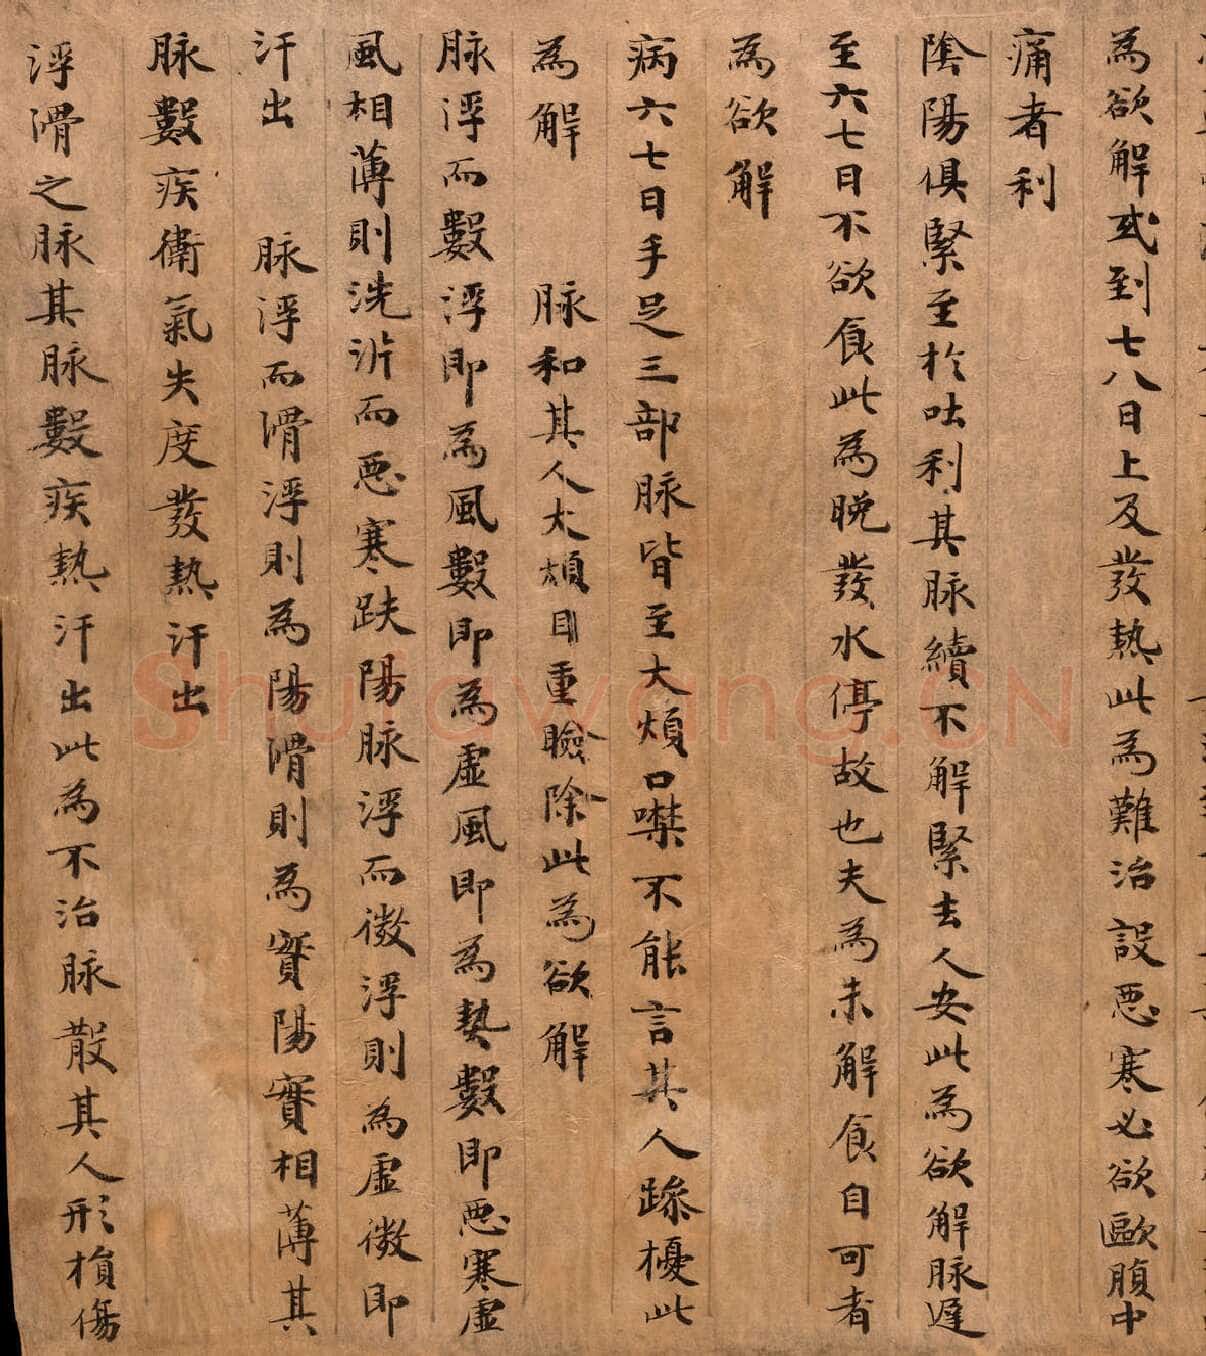 為欲解或到七八日上及發熱此為難治設惡寒必欲歐腹中
痛者利
陰陽俱緊至於吐利其脉續不解緊去人安此為欲解脉遲
至六七日不欲食此為晚發水停故也夫為未解食自可者
為欲解
病六七日手足三部脉皆至大煩口噤不能言其人躁擾此
為解 脉和其人大煩目重瞼除此為欲解
脉浮而數浮即為風數即為虛風即為熱數即惡寒虛
風相薄則洗泝而惡寒趺陽脉浮而微浮則為虛微即
汗出 脉浮而滑浮則為陽滑則為實陽實相薄其
脉數疾衛氣失度發熱汗出
浮滑之脉其脉數疾熱汗出此為不治脉散其人形損傷
Shufawang.CN